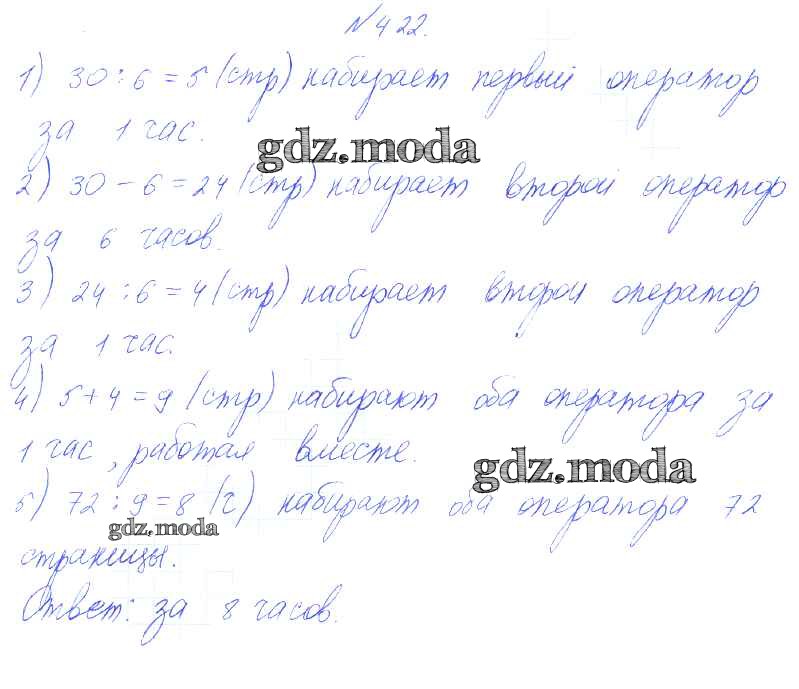 №422.
1) 30 : 6 = 5 (стр) набирает первый оператор
за 1 час.
gdz.moda
2) 30 - 6 = 24 (стр) набирает второй оператор
за 6 часов.
3) 24 : 6 = 4 (стр) набирает второй оператор
за 1 час.
4) 5 + 4 = 9 (стр) набирают оба оператора за
1 час, работая вместе.
gdz.moda
5) 72 : 9 = 8 (ч) набирают оба оператора 72
gdz.moda
страницы.
Ответ: за 8 часов.